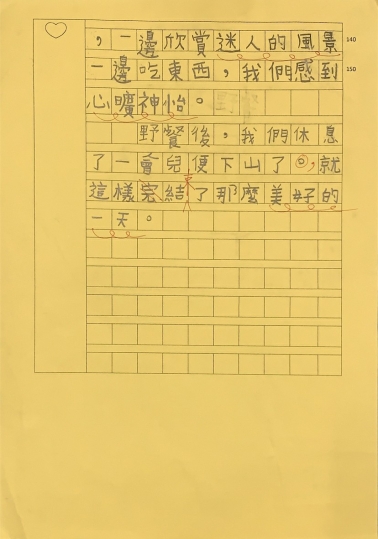 ，一邊欣賞迷人的風景
140
一邊吃東西，我們感到
150
心曠神怡。
野餐後，我們休息
了一會兒便下山了，就
這樣完結了那麼美好的
一天。